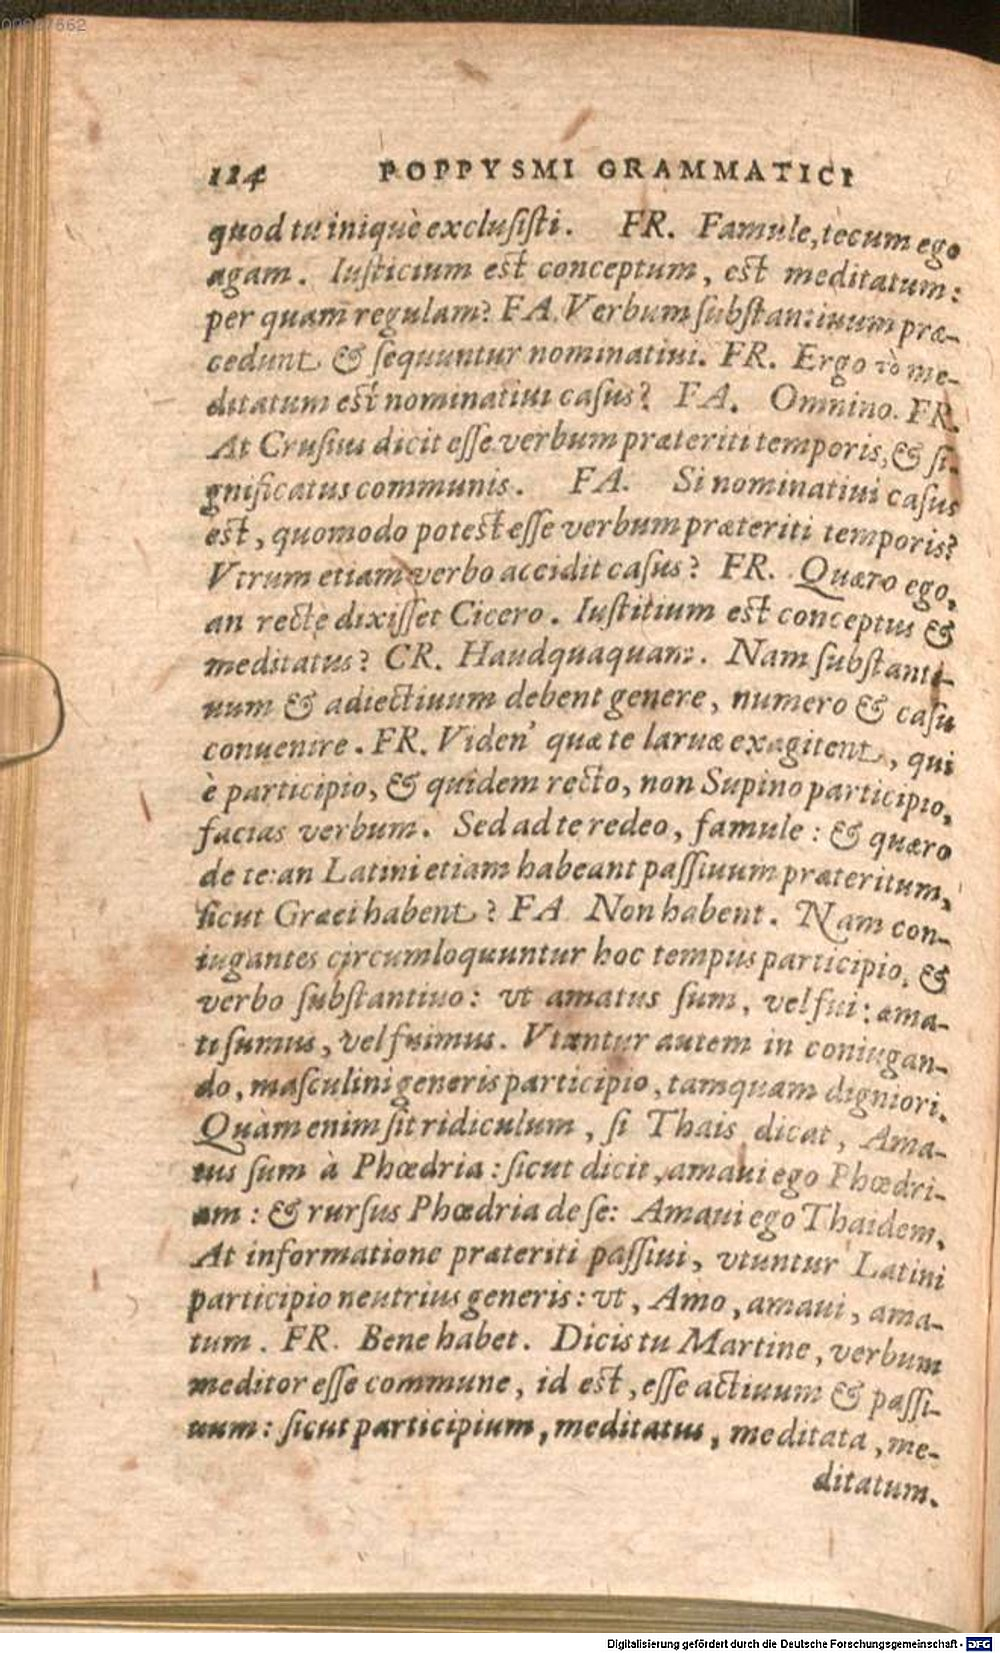 00067662
124 POPPYSMI GRAMMATICI
quod tu iniquè exclusisti. FR. Famule, tecum ego
agam. Iusticium est conceptum, est meditatum:
per quam regulam? FA. Verbum substantiuum præ-
cedunt & sequuntur nominatiui. FR. Ergo τὸ me-
ditatum est nominatiui casus? FA. Omnino. FR.
At Crusius dicit esse verbum præteriti temporis, & si-
gnificatus communis. FA. Si nominatiui casus
est, quomodo potest esse verbum præteriti temporis?
Vtrum etiam verbo accidit casus? FR. Quæro ego,
an recte dixisset Cicero. Iustitium est conceptus &
meditatus? CR. Haudquaquam. Nam substanti-
uum & adiectiuum debent genere, numero & casu
conuenire. FR. Viden' quæ te laruæ exagitent, qui
è participio, & quidem recto, non Supino participio,
facias verbum. Sed ad te redeo, famule: & quæro
de te: an Latini etiam habeant passiuum præteritum,
sicut Græci habent? FA Non habent. Nam con-
iugantes circumloquuntur hoc tempus participio, &
verbo substantiuo: vt amatus sum, vel fui: ama-
ti sumus, vel fuimus. Vtuntur autem in coniugan-
do, masculini generis participio, tamquam digniori.
Quàm enim sit ridiculum, si Thais dicat, Ama-
tus sum à Phœdria: sicut dicit, amaui ego Phœdri-
am: & rursus Phœdria de se: Amaui ego Thaidem.
At informatione præteriti passiui, vtuntur Latini
participio neutrius generis: vt, Amo, amaui, ama-
tum. FR. Bene habet. Dicis tu Martine, verbum
meditor esse commune, id est, esse actiuum & passi-
uum: sicut participium, meditatus, meditata, me-
ditatum.
Digitalisierung gefördert durch die Deutsche Forschungsgemeinschaft - DFG